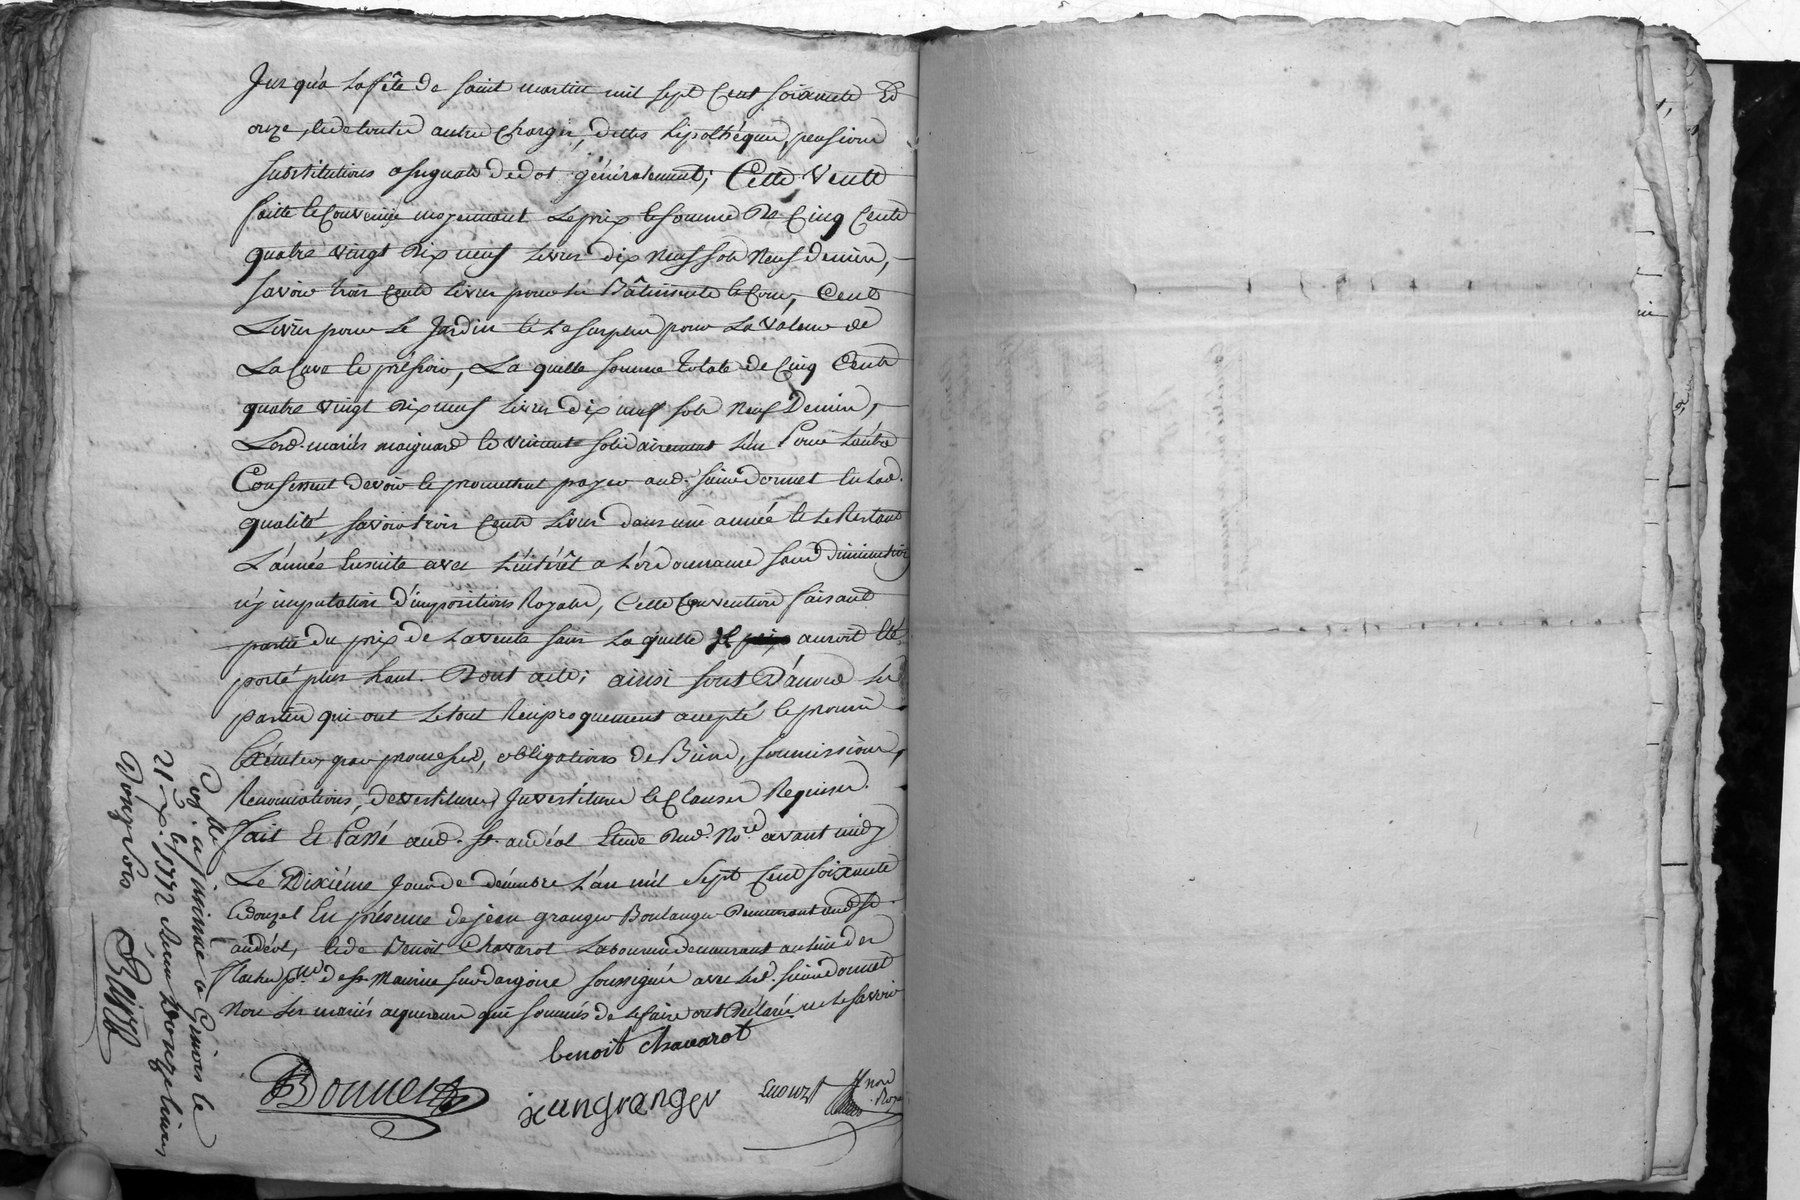 Jusqu'a la fête de saint martin mil sept Cent soixante Et
onze, et de toutes autres Charges, dettes hipothéques, pensions
substitutions assignats de dot généralement; Cette Vente
faitte et Convenüe moyennant le prix et somme De Cinq Cents
quatre vingt Dix neuf Livres dix Neuf sols Neuf Deniers,
savoir trois Cents Livres pour les Bâtiments et Cour, Cent
Livres pour Le Jardin et Le surplus pour La Valeur de
La Cave et préssoir, La quelle somme totale de Cinq Cents
quatre vingt Dix neuf Livres Dix neuf sols Neuf Deniers,
Lesd. mariés maignard et vincent solidairement L'un Pour L'autre
Confessent devoir et promettent payer aud. sieur Donnet En lad.
qualité, savoir trois Cents Livres dans une année et Le Restant
L'année Ensuite avec L'intérêt a L'ordonnance sans Diminution
n'y imputation d'impositions Royales, Cette Convention faisant
partie du prix de La vente sans La quelle il auroit Eté
porté plus haut. Dont acte; ainsi sont D'acord Les
parties qui ont Le tout Reciproquement accepté et promis
Exécuter par promesses, obligations de Biens, soumissions,
Renonciations, devestitures, Investitures et Clauses Requises.
Fait Et Passé aud. St. andéol Etude Dud. No.re avant midy
Le Dixiéme Jour de décembre L'an mil Sept Cent soixante
et douze En présence de jean granger Boulanger Demeurant aud. St.
andéol, et de Benoit Chavarot Laboureur demeurant au lieu des
flaches p.sse de St. Maurice sur dargoire soussignés avec led. sieur Donnet
Non Les mariés acquereurs qui sommés de Le faire ont Déclaré ne Le savoir
benoit chavarot
Donnet
jean granger
not.
Roya
Con.llé a Givors le
21 x.bre 1772 Reçu Douze livres
Douze sols